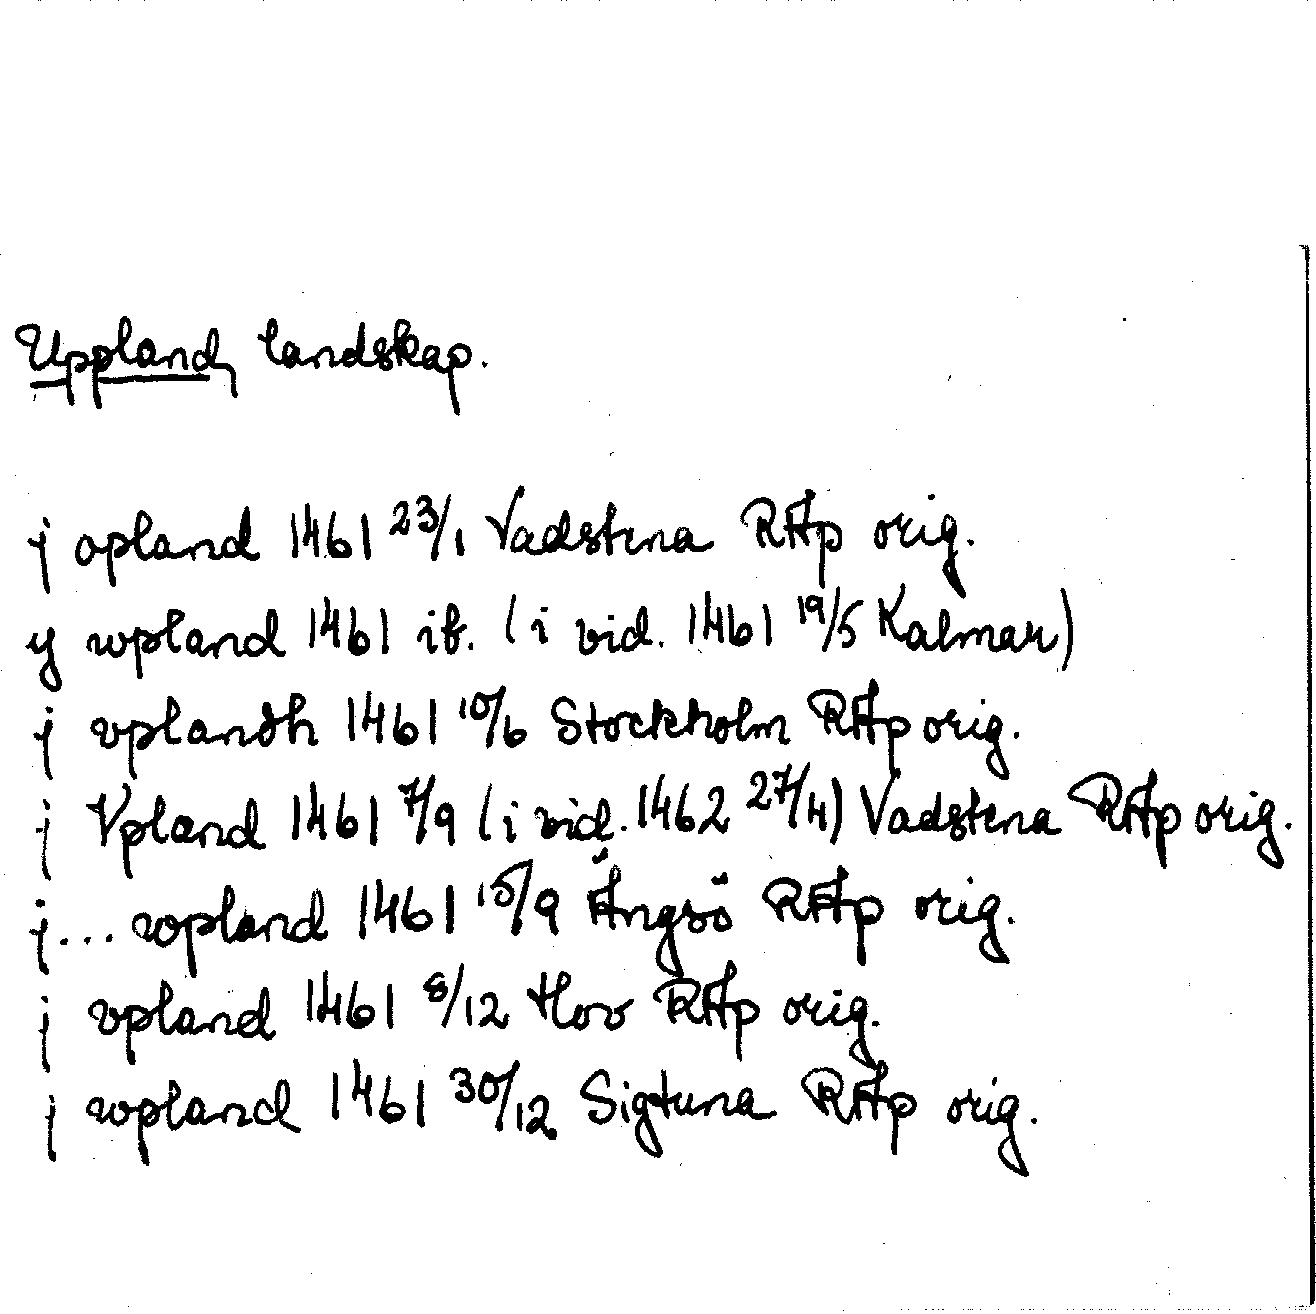 Uppland, landskap.
j opland 1461 23/1 Vadstena RAp orig.
y wpland 1461 ib. (i vid. 1461 19/5 Kalmar)
j vplandh 1461 10/6 Stockholm RAp orig.
j Vpland 1461 7/9 (i vid. 1462 27/4) Vadstena RAp orig.
j... wpland 1461 15/9 Ängsö RAp orig.
j vpland 1461 8/12 Hov RAp orig.
j wpland 1461 30/12 Sigtuna RAp orig.